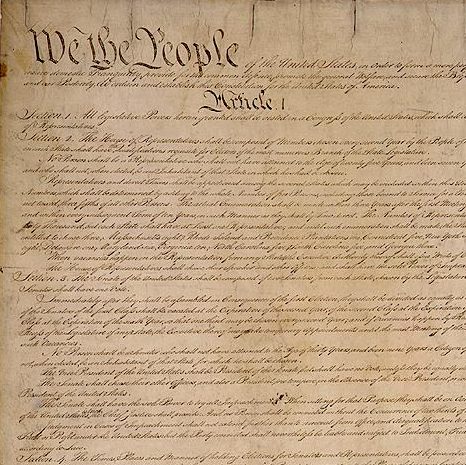 We the People of the United States, in Order to form a more perf
insure domestic Tranquility, provide for the common defence, promote the general Welfare, and secure the Bl
and our Posterity, do ordain and establish this Constitution for the United States of America.
Article I
Section 1. All legislative Powers herein granted shall be vested in a Congress of the United States, which shall
of Representatives.
Section 2. The House of Representatives shall be composed of Members chosen every second Year by the People of
in each State shall have Qualifications requisite for Electors of the most numerous Branch of the State Legislature.
No Person shall be a Representative who shall not have attained to the Age of twenty five Years, and been seven
and who shall not, when elected, be an Inhabitant of that State in which he shall be chosen.
Representatives and direct Taxes shall be apportioned among the several States which may be included within this
Numbers, which shall be determined by adding to the whole Number of free Persons, including those bound to Service for a
not taxed, three fifths of all other Persons. The actual Enumeration shall be made within three Years after the first Meeting
and within every subsequent Term of ten Years, in such Manner as they shall by Law direct. The Number of Representatives
thirty Thousand, but each State shall have at Least one Representative; and until such enumeration shall be made, the
entitled to chuse three, Massachusetts eight, Rhode Island and Providence Plantations one, Connecticut five, New York
eight, Delaware one, Maryland six, Virginia ten, North Carolina five, South Carolina five, and Georgia three.
When vacancies happen in the Representation from any State, the Executive Authority thereof shall issue Writs of
The House of Representatives shall chuse their Speaker and other Officers; and shall have the sole Power of Impeachment
Section 3. The Senate of the United States shall be composed of two Senators from each State, chosen by the Legislature
Senator shall have one Vote.
Immediately after they shall be assembled in Consequence of the first Election, they shall be divided as equally as
of the Senators of the first Class shall be vacated at the Expiration of the second Year, of the second Class at the Expiration
Class at the Expiration of the sixth Year, so that one third may be chosen every second Year; and if Vacancies happen by
Recess of the Legislature of any State, the Executive thereof may make temporary Appointments until the next Meeting of the
such Vacancies.
No Person shall be a Senator who shall not have attained to the Age of thirty Years, and been nine Years a Citizen of
not, when elected, be an Inhabitant of that State for which he shall be chosen.
The Vice President of the United States shall be President of the Senate, but shall have no Vote, unless they be equally
The Senate shall chuse their other Officers, and also a President pro tempore, in the Absence of the Vice President, or
President of the United States.
The Senate shall have the sole Power to try all Impeachments. When sitting for that Purpose, they shall be on
of the United States, the Chief Justice shall preside: And no Person shall be convicted without the Concurrence of two thirds of
Judgment in Cases of Impeachment shall not extend further than to removal from Office, and disqualification to
Trust or Profit under the United States: but the Party convicted shall nevertheless be liable and subject to Indictment,
according to Law.
Section 4. The Times, Places and Manner of holding Elections for Senators and Representatives, shall be